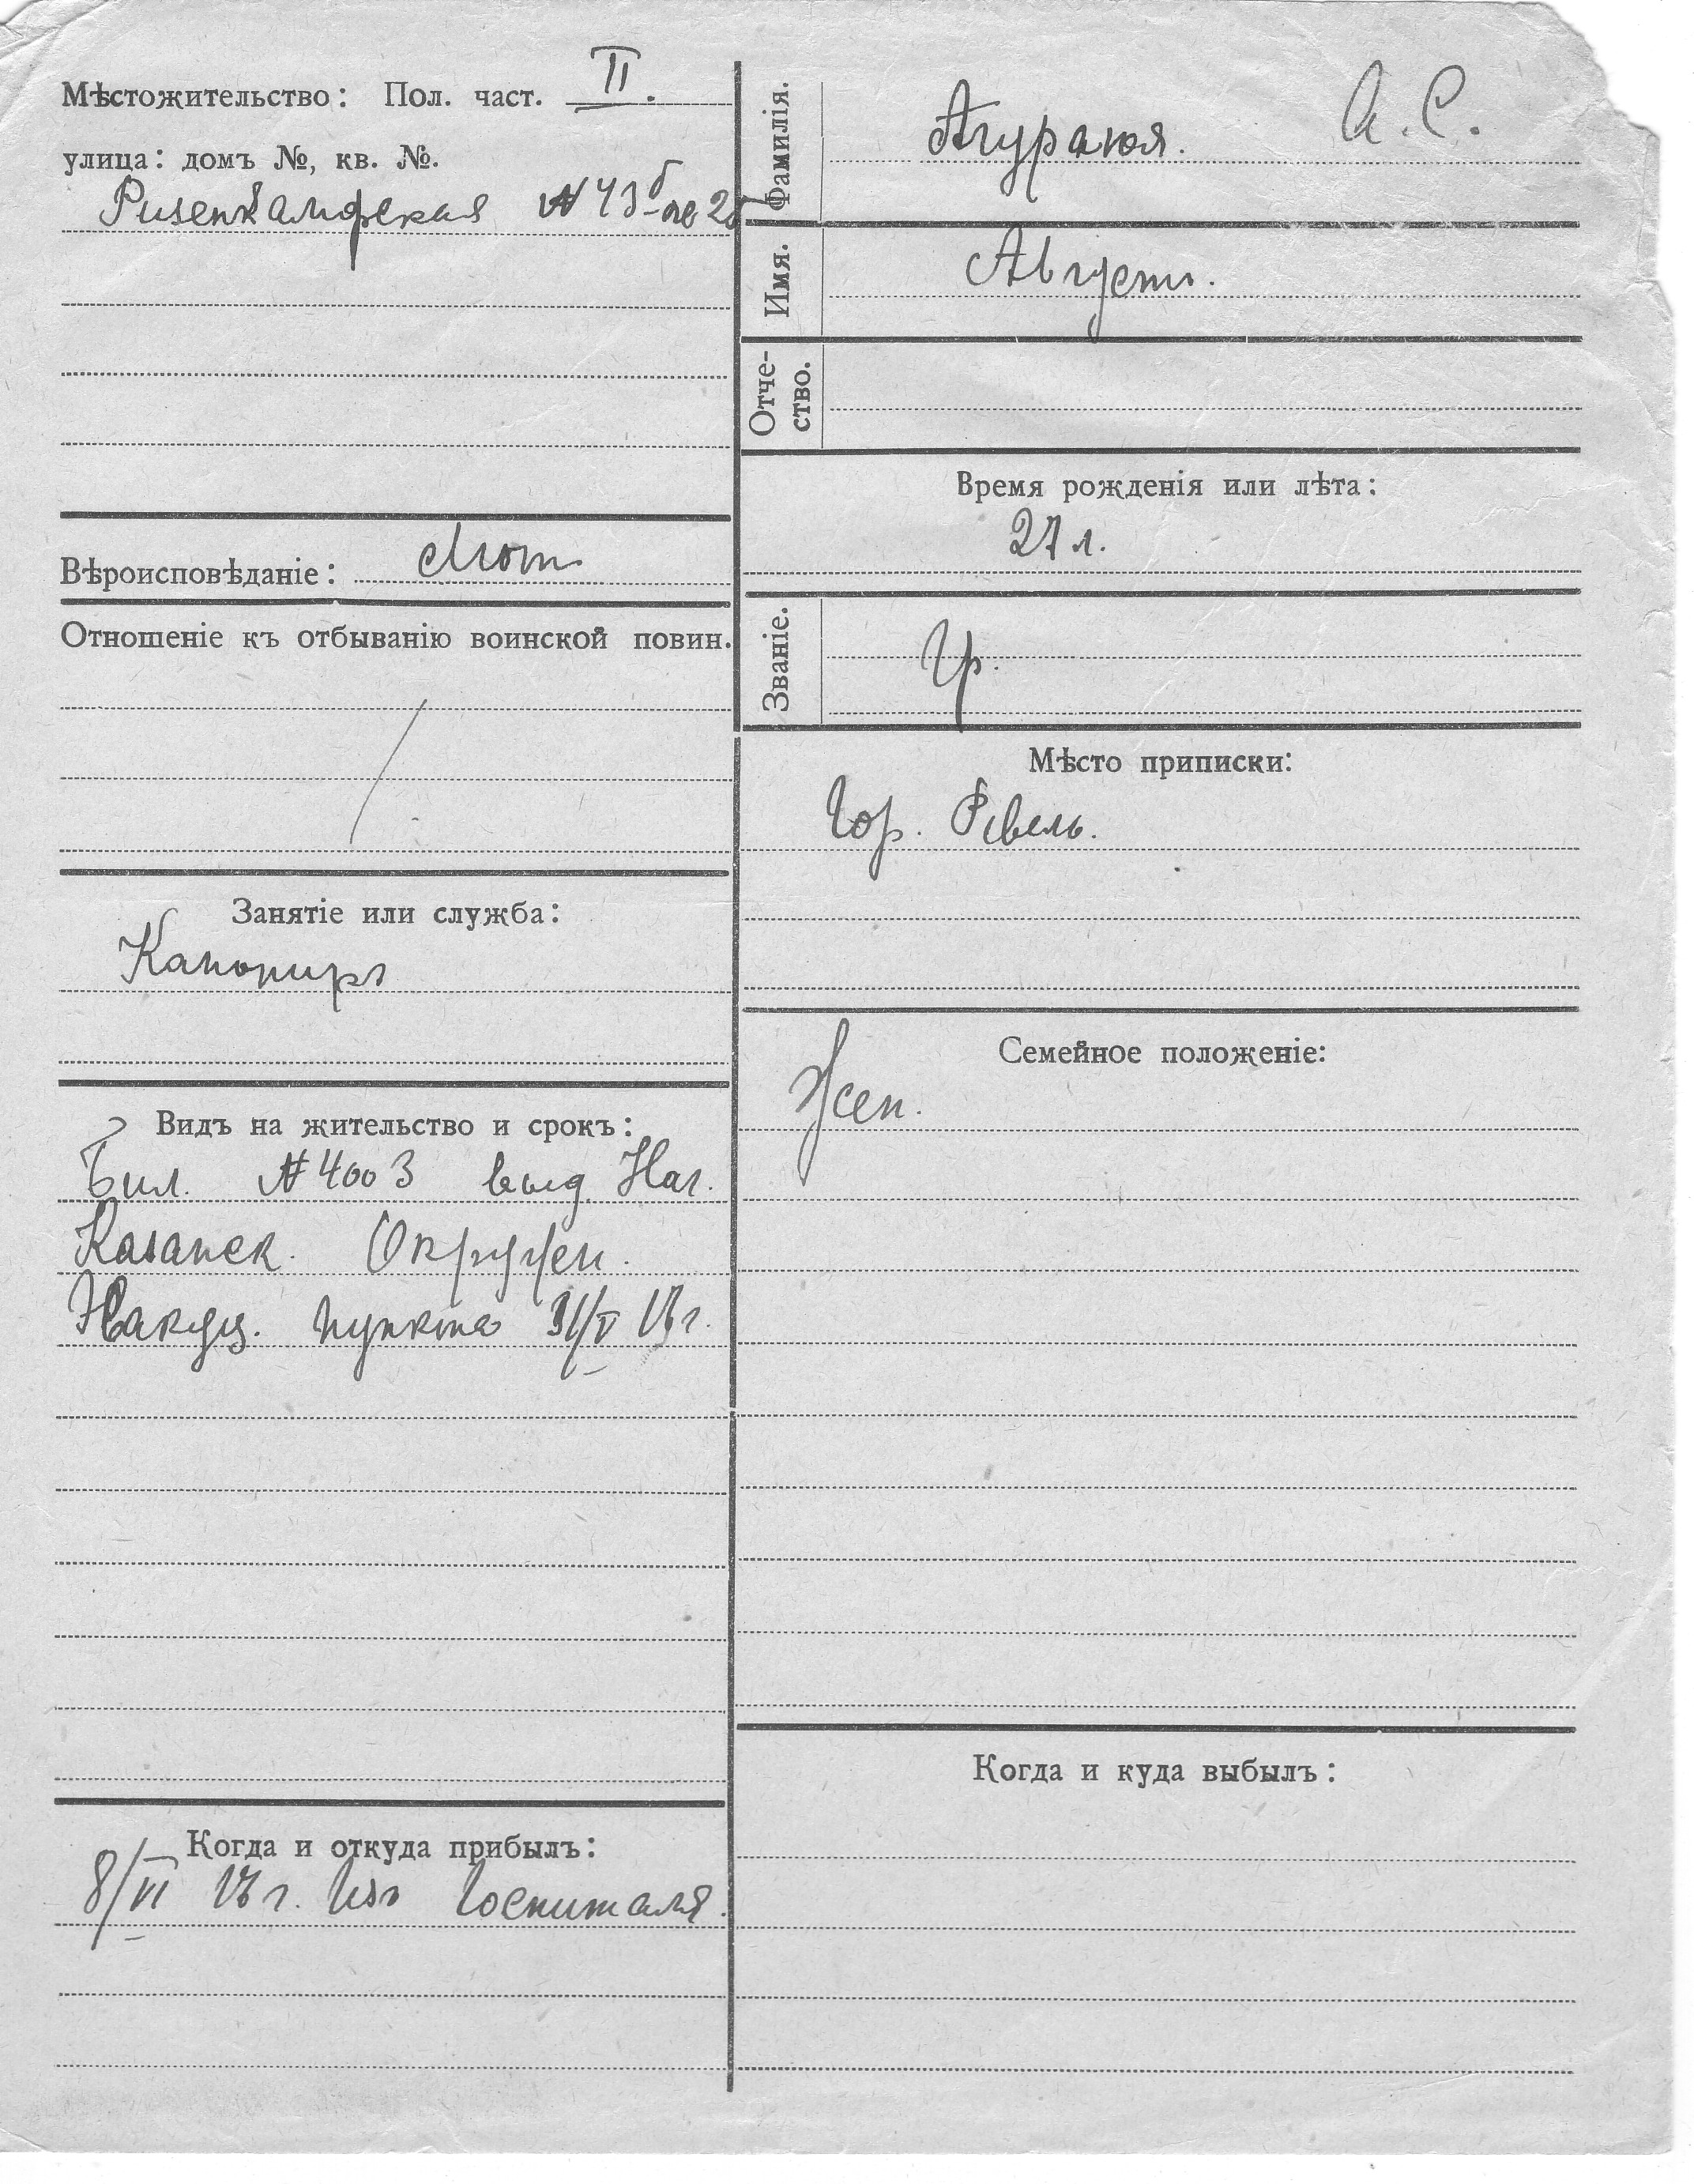 Мѣстожительство: Пол. част. II.
улица: домъ №, кв. №.
Ризенкампфская № 43б кв 25
Вѣроисповѣданіе: Лют
Отношеніе къ отбыванію воинской повин.
Занятіе или служба:
Канониръ
Видъ на жительство и срокъ:
Бил. № 4003 выд. Нач.
Казанск. Окружн.
Эвакуац. пункта 31/V 17 г.
Когда и откуда прибылъ:
8/VI 17 г. Изъ Госпиталя.
Фамилія.
А. С.
Имя.
Августъ.
Отче-
ство.
Время рожденія или лѣта:
27 л.
Званіе.
Гр.
Мѣсто приписки:
Гор. Ревель.
Семейное положеніе:
Жен.
Когда и куда выбылъ: